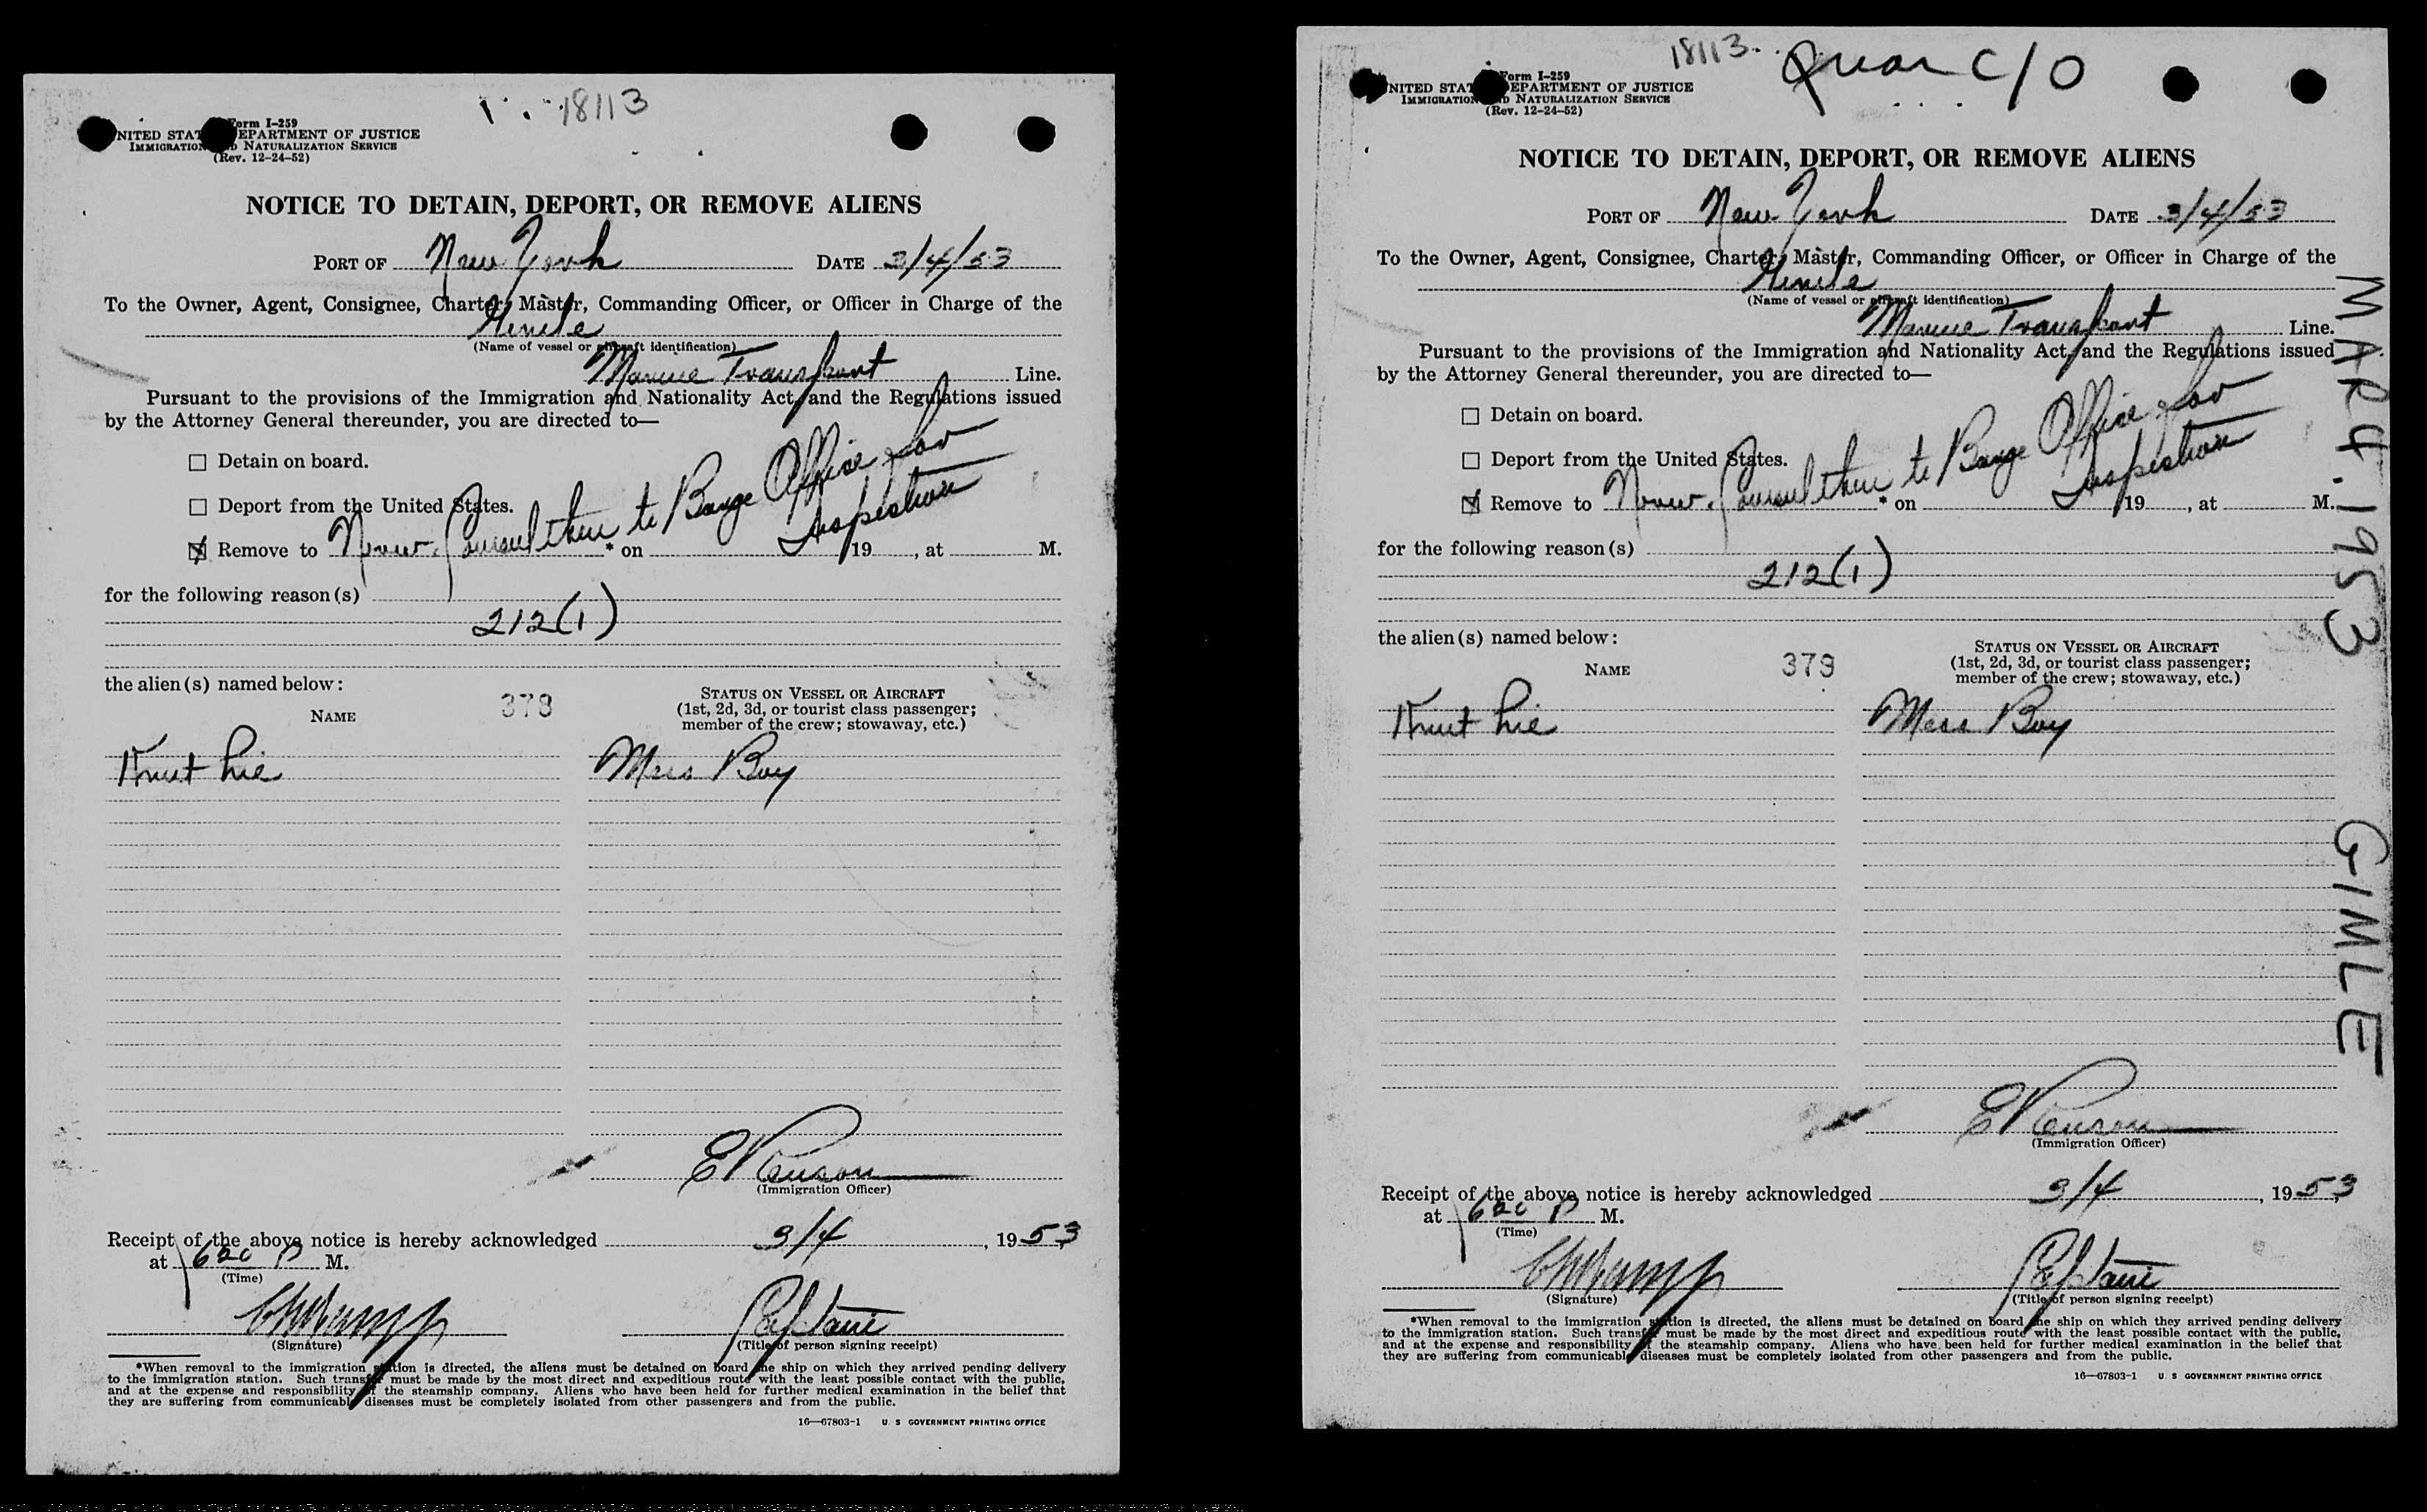 18113
Form I-259
UNITED STATES DEPARTMENT OF JUSTICE
IMMIGRATION AND NATURALIZATION SERVICE
(Rev. 12-24-52)
NOTICE TO DETAIN, DEPORT, OR REMOVE ALIENS
PORT OF New York DATE 3/4/53
To the Owner, Agent, Consignee, Charter, Master, Commanding Officer, or Officer in Charge of the
Gimle
(Name of vessel or aircraft identification)
Marine Transport Line.
Pursuant to the provisions of the Immigration and Nationality Act, and the Regulations issued
by the Attorney General thereunder, you are directed to—
☐ Detain on board.
☐ Deport from the United States.
☒ Remove to Norw. Consul then to Barge Office for Inspection * on 19 , at M.
for the following reason(s)
212(1)
the alien(s) named below:
NAME
378
STATUS ON VESSEL OR AIRCRAFT
(1st, 2d, 3d, or tourist class passenger;
member of the crew; stowaway, etc.)
Knut Lie Mess Boy
(Immigration Officer)
Receipt of the above notice is hereby acknowledged 3/4, 1953
at 620 P M.
(Time)
Captain
(Signature) (Title of person signing receipt)
*When removal to the immigration station is directed, the aliens must be detained on board the ship on which they arrived pending delivery
to the immigration station. Such transfer must be made by the most direct and expeditious route with the least possible contact with the public,
and at the expense and responsibility of the steamship company. Aliens who have been held for further medical examination in the belief that
they are suffering from communicable diseases must be completely isolated from other passengers and from the public.
16—67803-1 U. S GOVERNMENT PRINTING OFFICE
18113
Quar C/O
Form I-259
UNITED STATES DEPARTMENT OF JUSTICE
IMMIGRATION AND NATURALIZATION SERVICE
(Rev. 12-24-52)
NOTICE TO DETAIN, DEPORT, OR REMOVE ALIENS
PORT OF New York DATE 3/4/53
To the Owner, Agent, Consignee, Charter, Master, Commanding Officer, or Officer in Charge of the
Gimle
(Name of vessel or aircraft identification)
Marine Transport Line.
Pursuant to the provisions of the Immigration and Nationality Act, and the Regulations issued
by the Attorney General thereunder, you are directed to—
☐ Detain on board.
☐ Deport from the United States.
☒ Remove to Norw. Consul then to Barge Office for Inspection * on 19 , at M.
for the following reason(s)
212(1)
the alien(s) named below:
NAME
379
STATUS ON VESSEL OR AIRCRAFT
(1st, 2d, 3d, or tourist class passenger;
member of the crew; stowaway, etc.)
Knut Lie Mess Boy
(Immigration Officer)
Receipt of the above notice is hereby acknowledged 3/4, 1953
at 620 P M.
(Time)
Captain
(Signature) (Title of person signing receipt)
*When removal to the immigration station is directed, the aliens must be detained on board the ship on which they arrived pending delivery
to the immigration station. Such transfer must be made by the most direct and expeditious route with the least possible contact with the public,
and at the expense and responsibility of the steamship company. Aliens who have been held for further medical examination in the belief that
they are suffering from communicable diseases must be completely isolated from other passengers and from the public.
16—67803-1 U. S GOVERNMENT PRINTING OFFICE
MAR 4. 1953 GIMLE